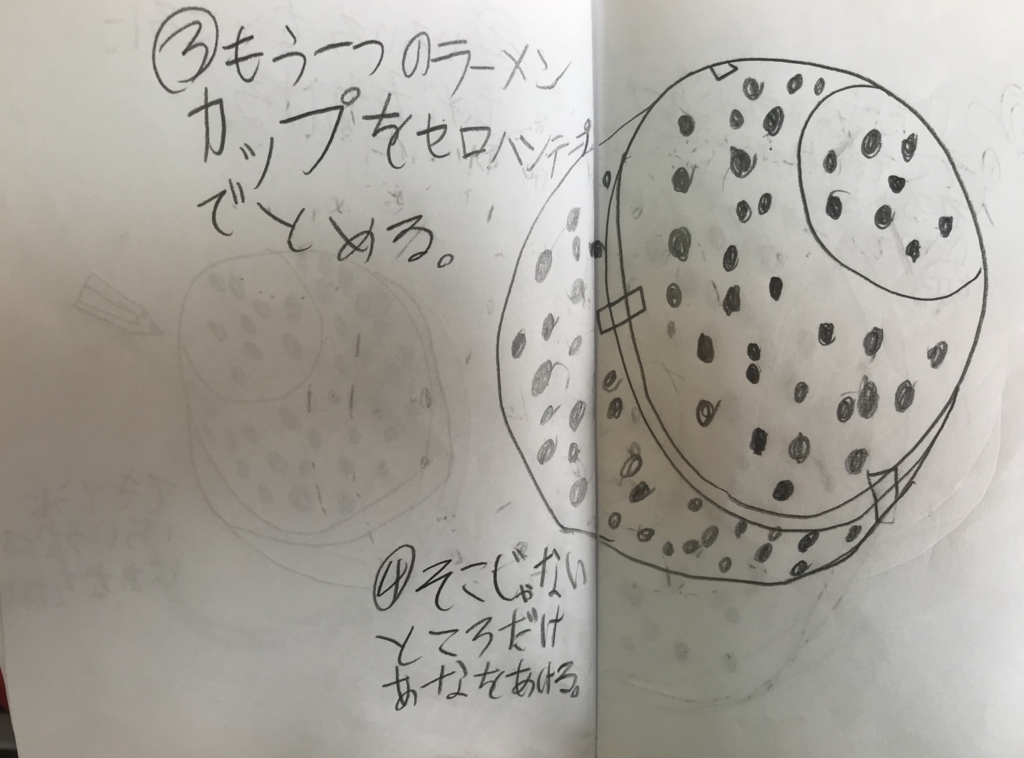 ③もう一つのラーメン
カップをセロハンテープ
でとめる。
④そこじゃない
ところだけ
あなをあける。